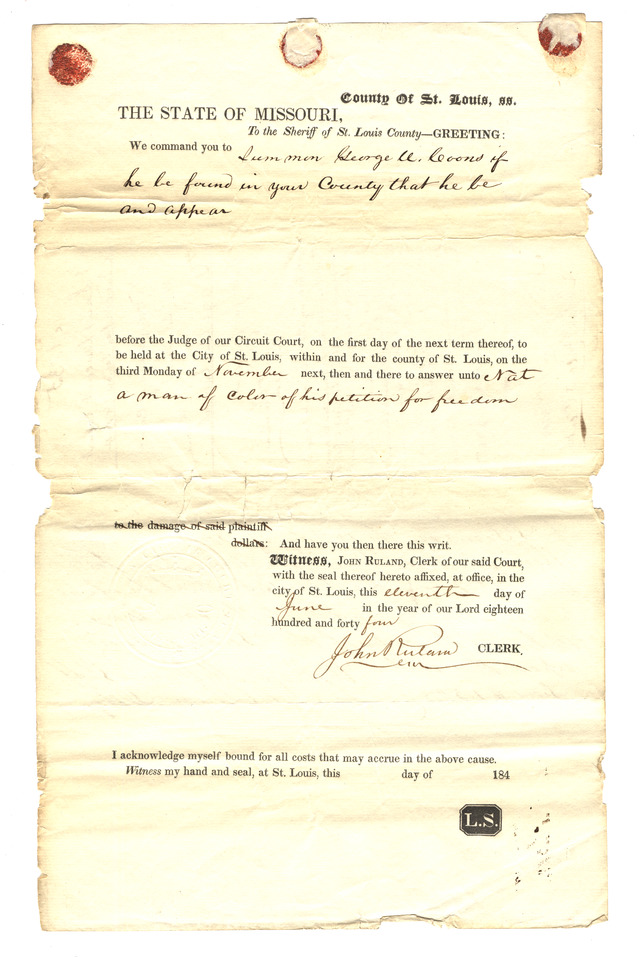 County Of St. Louis, ss.
THE STATE OF MISSOURI,
To the Sheriff of St. Louis County—GREETING:
We command you to Summon George W. Coons if
he be found in your County that he be
and appear
before the Judge of our Circuit Court, on the first day of the next term thereof, to
be held at the City of St. Louis, within and for the county of St. Louis, on the
third Monday of November next, then and there to answer unto Nat
a man of color of his petition for freedom
to the damage of said plaintiff
dollars: And have you then there this writ.
Witness, JOHN RULAND, Clerk of our said Court,
with the seal thereof hereto affixed, at office, in the
city of St. Louis, this eleventh day of
June in the year of our Lord eighteen
hundred and forty four
John Ruland CLERK.
I acknowledge myself bound for all costs that may accrue in the above cause.
Witness my hand and seal, at St. Louis, this day of 184
L.S.